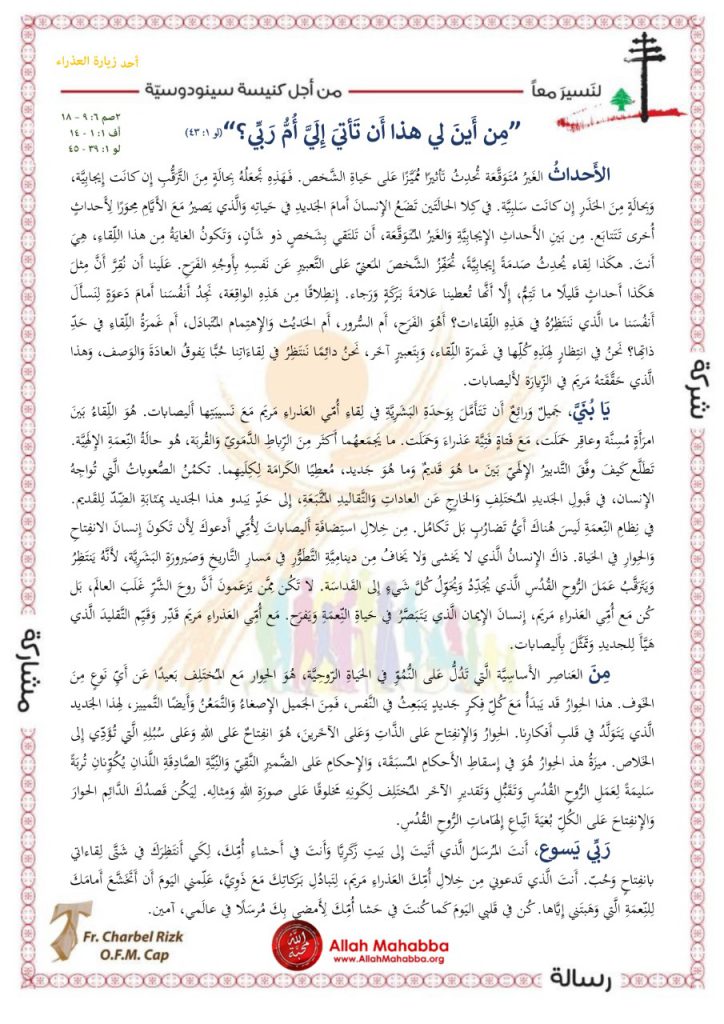 أحد زيارة العذراء
لنَسيرَ معاً
من أجل كنيسة سينودوسيّة
٢صم ٦: ٩ - ١٨
أف ١: ١ - ١٤
لو ١: ٣٩ - ٤٥
”مِن أَينَ لي هذا أَن تَأتِيَ إِلَيَّ أُمُّ رَبِّي؟“ (لو ١: ٤٣)
الأَحداثُ الغَيرُ مُتَوَقَّعَة تُحدِثُ تَأثيرًا مُمَيَّزًا عَلى حَياةِ الشَّخص. فَهَذِهِ تَجعَلُهُ بِحالَةٍ مِنَ التَّرَقُّبِ إن كانَت إيجابِيَّة،
وَبِحالَةٍ مِنَ الحَذَرِ إن كانَت سَلبِيَّة. في كِلا الحالَتَين تَضَعُ الإنسانَ أمامَ الجَديدِ في حَياتِهِ والَّذي يَصيرُ مَعَ الأيّامِ مِحوَرًا لِأَحداثٍ
أُخرى تَتَتابَع. مِن بَينِ الأَحداثِ الإيجابِيَّةِ والغَيرُ المُتَوَقَّعَة، أن تَلتَقي بِشَخصٍ ذو شَأن، وَتَكونُ الغايَةُ مِن هذا اللِّقاء، هِيَ
أنتَ. هكَذا لِقاء يُحدِثُ صَدمَةً إيجابِيَّة، تُحَفِّزُ الشَّخصَ المَعنيّ عَلى التَّعبيرِ عَن نَفسِهِ بِأَوجُهِ الفَرَح. عَلَينا أن نُقِرَّ أنَّ مِثلَ
هَكَذا أحداثٍ قَليلًا ما تَتِمُّ، إلَّا أنَّها تُعطينا عَلامَةَ بَرَكَةٍ وَرَجاء. إنطِلاقًا مِن هَذِهِ الواقِعَة، نَجِدُ أنفُسَنا أمامَ دَعوَةٍ لِنَسأَلَ
أنفُسَنا ما الَّذي نَنتَظِرُهُ في هَذِهِ اللِّقاءات؟ أهُوَ الفَرَح، أم السُّرور، أم الحَديثُ والإهتِمام المُتَبادَل، أم غَمرَةُ اللِّقاءِ في حَدِّ
ذاتِها؟ نَحنُ في انتِظارٍ لِهَذِهِ كُلِّها في غَمرَةِ اللِّقاء، وَبِتَعبيرٍ آخَر، نَحنُ دائِمًا نَنتَظِرُ في لِقاءَاتِنا حُبًّا يَفوقُ العادَةَ والوَصف، وَهذا
الَّذي حَقَّقَتهُ مَريَم في الزِّيارَةِ لِأَليصابات.
يَا بُنَيَّ، جَميلٌ وَرائِعٌ أن تَتَأَمَّلَ بِوَحدَةِ البَشَرِيَّةِ في لِقاءِ أُمِّي العَذراءِ مَريَم مَعَ نَسيبَتِها أليصابات. هُوَ اللِّقاءُ بَينَ
امرَأَةٍ مُسِنَّة وعاقِرٍ حَمَلَت، مَعَ فَتاةٍ فَتِيَّة عَذراءَ وَحَمَلَت. ما يَجمَعهُما أكثَر مِنَ الرِّباطِ الدَّمَويّ والقُربَة، هُوَ حالَةُ النِّعمَةِ الإلَهِيَّة.
تَطَلَّع كَيفَ وَفقَ التَّدبيرِ الإلَهيّ بَينَ ما هُوَ قَديمٌ وَما هُوَ جَديد، مُعطِيًا الكَرامَةَ لِكِلَيهِما. تَكمُنُ الصُّعوباتُ الَّتي تُواجِهُ
الإنسان، في قَبولِ الجَديدِ المُختَلِفِ والخارِجِ عَن العاداتِ والتَّقاليدِ المُتَّبَعَة، إلى حَدٍّ يَبدو هذا الجَديد بِمَثابَةِ الضِّدّ لِلقَديم.
في نِظامِ النِّعمَةِ لَيسَ هُناكَ أيُّ تَضارُبٍ بَل تَكامُل. مِن خِلالِ استِضافَةِ أليصابات لِأُمّي أدعوكَ لِأَن تَكونَ إنسانَ الانفِتاحِ
والحِوارِ في الحَياة. ذاكَ الإنسانُ الَّذي لا يَخشى وَلا يَخافُ مِن دينامِيَّةِ التَّطَوُّرِ في مَسارِ التَّاريخِ وَصَيرورَةِ البَشَرِيَّة، لِأَنَّهُ يَنتَظِرُ
وَيَتَرَقَّبُ عَمَلَ الرُّوحِ القُدُسِ الَّذي يُجَدِّدُ وَيُحَوِّلُ كُلَّ شَيءٍ إلى القَداسَة. لا تَكُن مِمَّن يَزعَمونَ أنَّ روحَ الشَّرِّ غَلَبَ العالَم، بَل
كُن مَعَ أُمّي العَذراءِ مَريَم، إنسانَ الإيمانِ الَّذي يَتَبَصَّرُ في حَياةِ النِّعمَةِ وَيَفرَح. مَعَ أُمّي العَذراءِ مَريَم قَدِّر وَقَيِّم التَّقليدَ الَّذي
هَيَّأَ لِلجَديدِ وَتَمَثَّلَ بِأَليصابات.
مِنَ العَناصِرِ الأَساسِيَّةِ الَّتي تَدُلُّ عَلى النُّمُوِّ في الحَياةِ الرّوحِيَّة، هُوَ الحِوار مَعَ المُختَلِفِ بَعيدًا عَن أيّ نَوعٍ مِنَ
الخَوف. هذا الحِوارُ قَد يَبدَأُ مَعَ كُلِّ فِكرٍ جَديدٍ يَنبَعِثُ في النَّفس، فَمِنَ الجَميلِ الإصغاءُ والتَّمَعُّنُ وَأيضًا التَّمييز، لِهذا الجَديد
الَّذي يَتَوَلَّدُ في قَلبِ أفكارِنا. الحِوارُ والإنفِتاح عَلى الذَّاتِ وَعَلى الآخَرين، هُوَ انفِتاحٌ عَلى اللهِ وَعَلى سُبُلِهِ الَّتي تُؤَدّي إلى
الخَلاص. ميزَةُ هذا الحِوارُ هُوَ في إسقاطِ الأَحكامِ المُسبَقَة، والإحكامِ عَلى الضَّميرِ النَّقِيّ والنِّيَّةِ الصَّادِقَةِ اللَّذانِ يُكَوِّنانِ تُربَةً
سَليمَةً لِعَمَلِ الرُّوحِ القُدُسِ وَتَقَبُّلِ وَتَقديرِ الآخَر المُختَلِف لِكَونِهِ مَخلوقًا عَلى صورَةِ اللهِ وَمِثالِه. لِيَكُن قَصدُكَ الدَّائِم الحِوارَ
وَالإنفِتاحَ عَلى الكُلِّ بُغيَةَ اتِّباعِ إلهاماتِ الرُّوحِ القُدُس.
رَبِّي يَسوع، أنتَ المُرسَلُ الَّذي أتَيتَ إلى بَيتِ زَكَرِيَّا وَأنتَ في أحشاءِ أُمِّكَ، لِكَي أنتَظِرَكَ في شَتَّى لِقاءاتي
بانفِتاحٍ وَحُبّ. أنتَ الَّذي تَدعوني مِن خِلالِ أُمِّكَ العَذراءِ مَريَم، لِتَبادُلِ بَرَكاتِكَ مَعَ ذَوِيَّ، عَلِّمني اليَومَ أن أتَخَشَّعَ أمامَكَ
لِلنِّعمَةِ الَّتي وَهَبتَني إيَّاها. كُن في قَلبي اليَومَ كَما كُنتَ في حَشا أُمِّكَ لِأَمضِيَ بِكَ مُرسَلًا في عالَمي، آمين.
شركة
مشاركة
رسالة
Fr. Charbel Rizk
O.F.M. Cap
الله محبة
Allah Mahabba
www.AllahMahabba.org